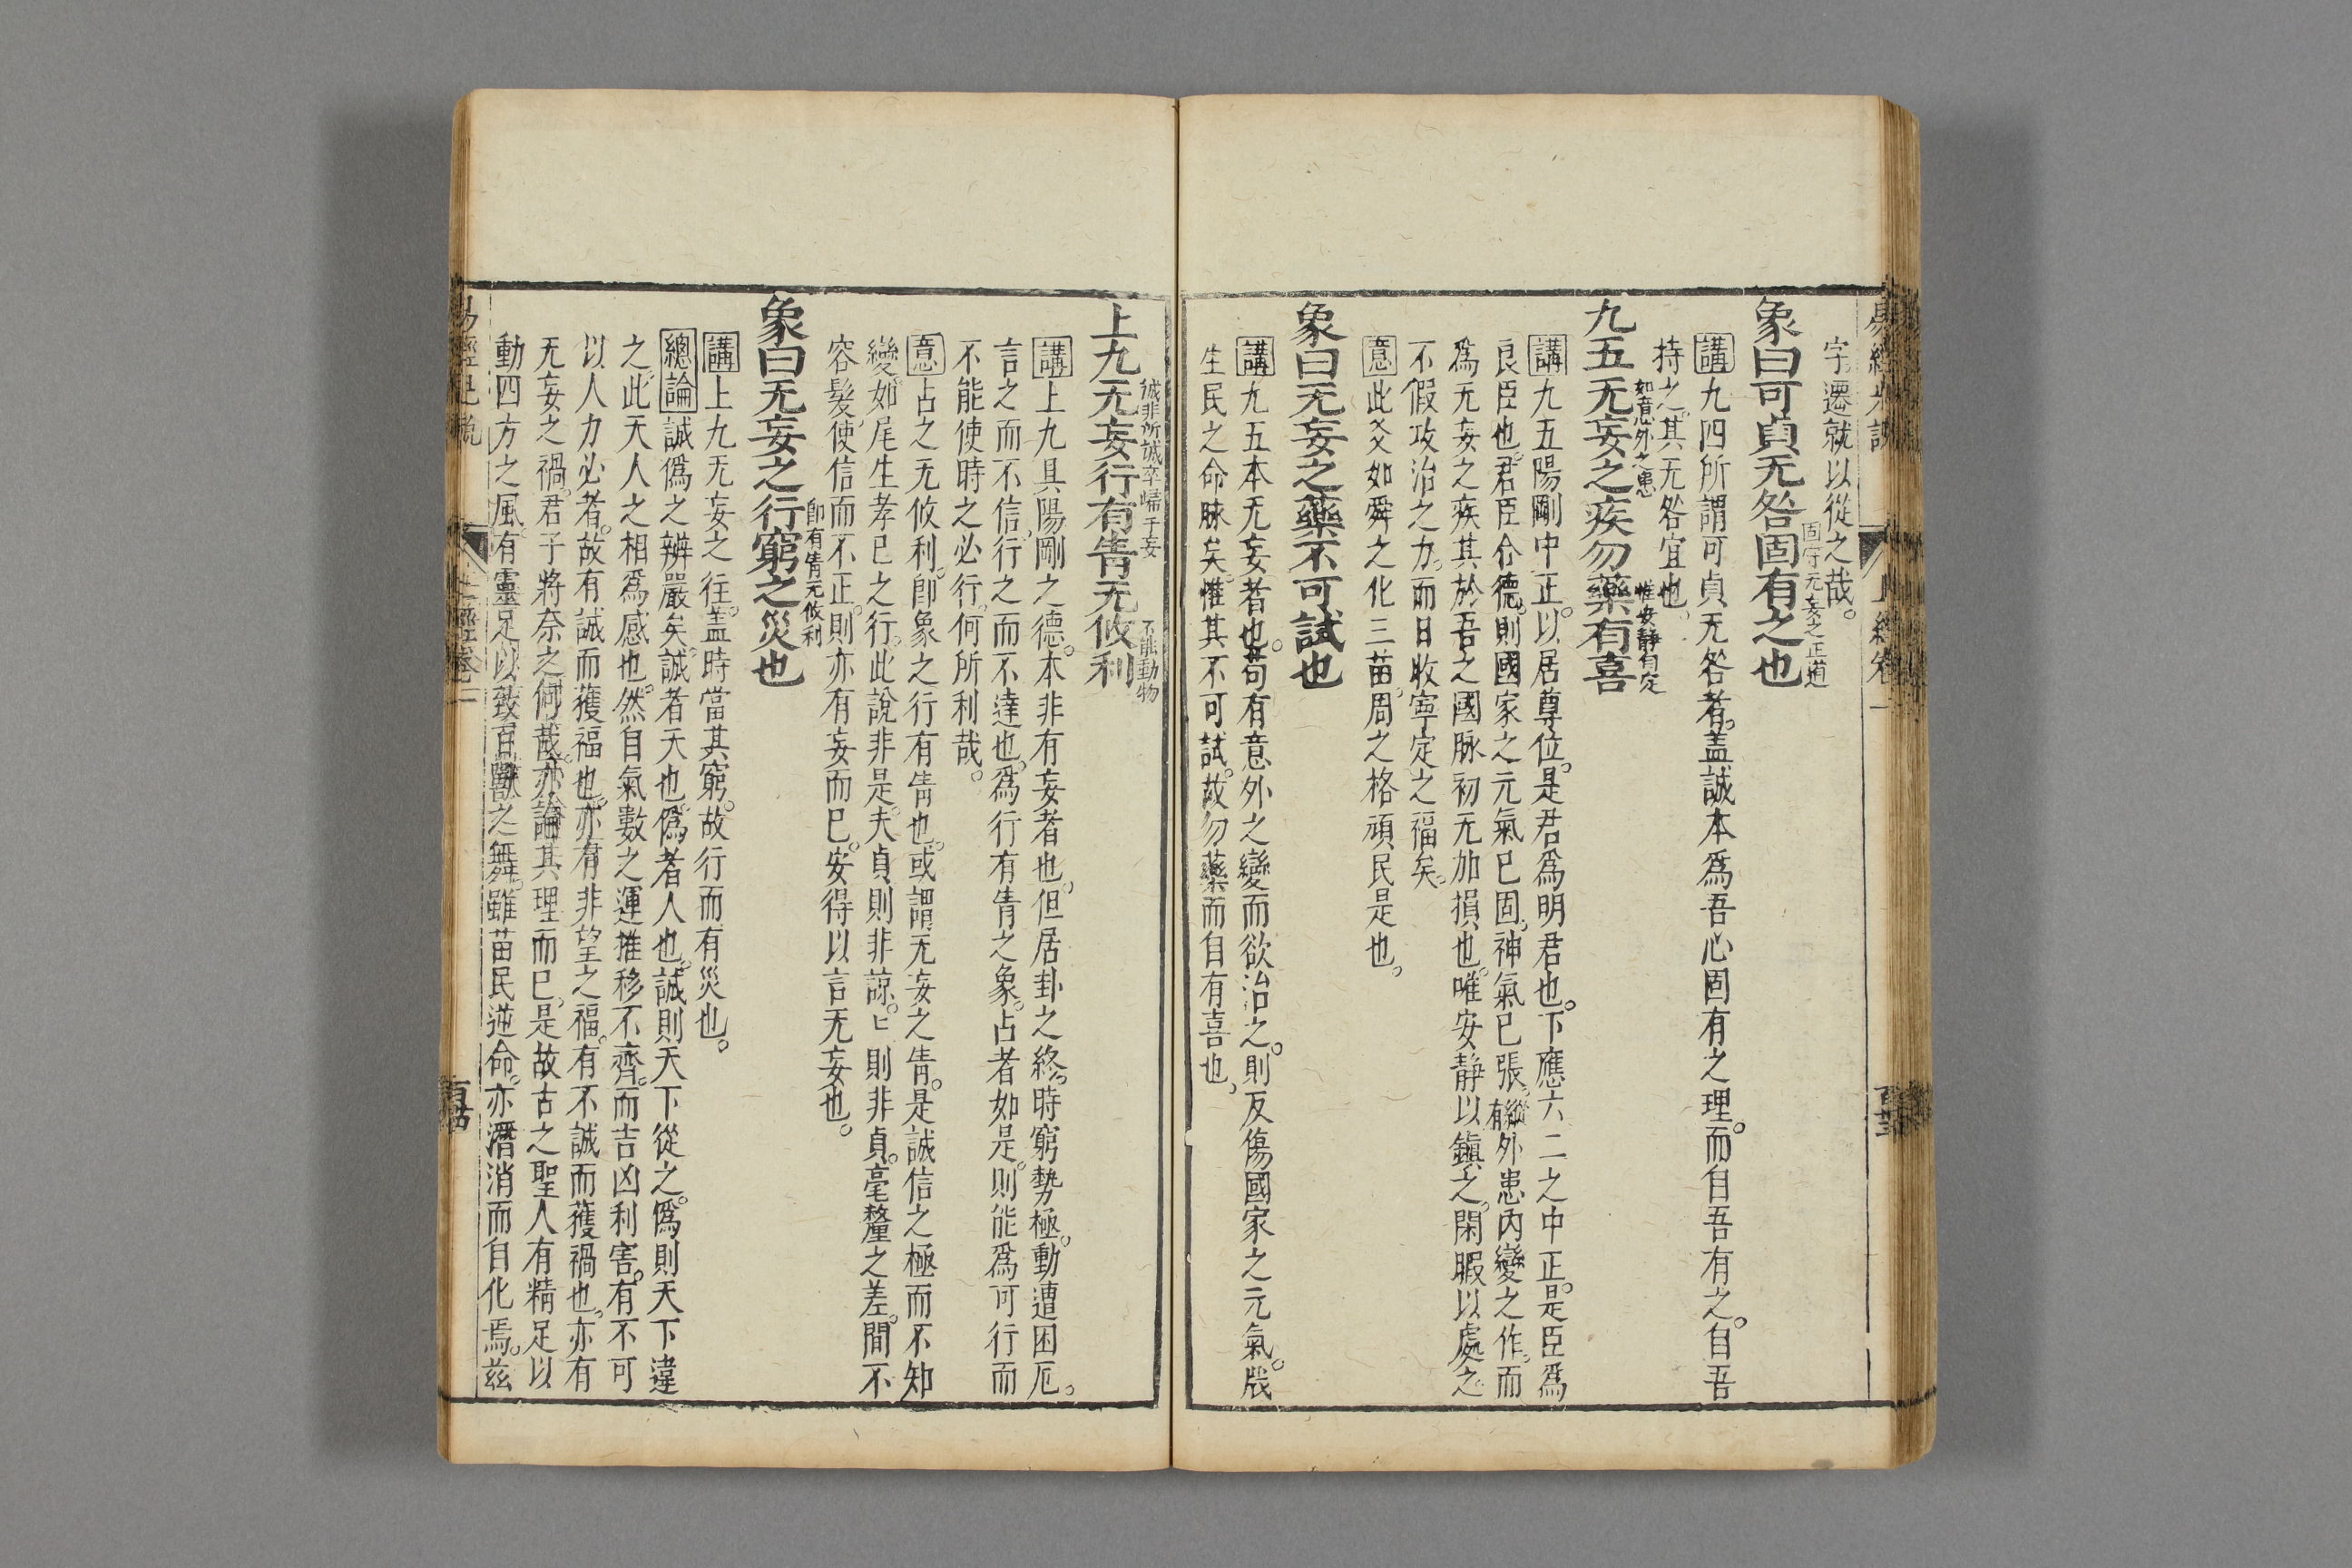 字遷就以從之哉。
象曰可貞无咎固有之也
固守无妄之正道
講九四所謂可貞无咎者。蓋誠本爲吾心固有之理。而自吾有之。自吾
持之。其无咎宜也。
九五无妄之疾勿藥有喜
如意外之患
惟安靜自定
講九五陽剛中正。以居尊位。是君爲明君也。下應六二之中正。是臣爲
良臣也。君臣合德。則國家之元氣已固。神氣已張。縱有外患內變之作。而
爲无妄之疾其於吾之國脉初无加損也。唯安靜以鎮之。閑暇以處之
不假攻治之力。而日收寧定之福矣。
意此爻如舜之化三苗。周之格頑民是也。
象曰无妄之藥不可試也
講九五本无妄者也。苟有意外之變而欲治之。則反傷國家之元氣。戕
生民之命脉矣。惟其不可試。故勿藥而自有喜也。
上九无妄行有眚无攸利
誠非所誠卒歸于妄
不能動物
講上九具陽剛之德。本非有妄者也。但居卦之終。時窮勢極。動遭困厄。
言之而不信。行之而不達也。爲行有眚之象。占者如是。則能爲可行而
不能使時之必行。何所利哉。
意占之无攸利。卽象之行有眚也。或謂无妄之眚。是誠信之極而不知
變。如尾生孝已之行。此說非是。夫貞則非諒。匕則非貞。毫釐之差。間不
容髮。使信而不正。則亦有妄而已。安得以言无妄也。
象曰无妄之行窮之災也
卽有眚无攸利
講上九无妄之往。蓋時當其窮。故行而有災也。
總論誠僞之辨嚴矣。誠者天也。僞者人也。誠則天下從之。僞則天下違
之。此天人之相爲感也。然自氣數之運推移不齊。而吉凶利害。有不可
以人力必者。故有誠而獲福也。亦有非望之福。有不誠而獲禍也。亦有
无妄之禍。君子將奈之何哉。亦論其理而已。是故古之聖人有精足以
動四方之風。有靈足以致百獸之舞。雖苗民逆命。亦潛消而自化焉。茲